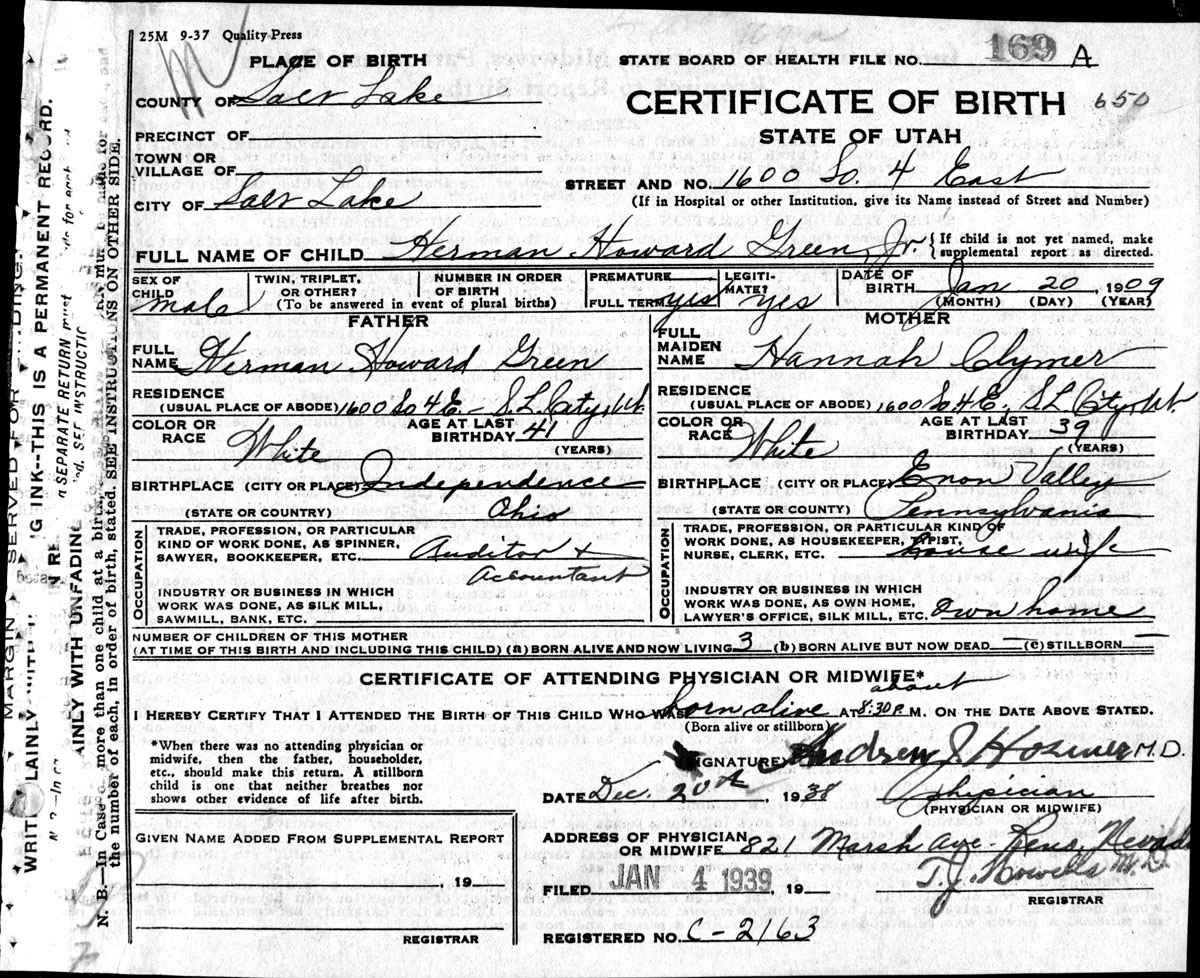 25M 9-37 Quality Press
PLACE OF BIRTH
STATE BOARD OF HEALTH FILE NO. 169 A
COUNTY OF Salt Lake
CERTIFICATE OF BIRTH 650
PRECINCT OF
STATE OF UTAH
TOWN OR
VILLAGE OF
STREET AND NO. 1600 So. 4 East
CITY OF Salt Lake
(If in Hospital or other Institution, give its Name instead of Street and Number)
FULL NAME OF CHILD Herman Howard Green, Jr. {If child is not yet named, make
supplemental report as directed.
SEX OF CHILD male
TWIN, TRIPLET, OR OTHER?
NUMBER IN ORDER OF BIRTH
(To be answered in event of plural births)
PREMATURE
FULL TERM yes
LEGITIMATE? yes
DATE OF BIRTH Jan 20, 1909
(MONTH) (DAY) (YEAR)
FATHER
FULL NAME Herman Howard Green
RESIDENCE
(USUAL PLACE OF ABODE) 1600 So 4 E - S.L. City, Ut.
COLOR OR RACE White
AGE AT LAST BIRTHDAY 41
(YEARS)
BIRTHPLACE (CITY OR PLACE) Independence
(STATE OR COUNTRY) Ohio
OCCUPATION
TRADE, PROFESSION, OR PARTICULAR
KIND OF WORK DONE, AS SPINNER,
SAWYER, BOOKKEEPER, ETC. Auditor +
Accountant
INDUSTRY OR BUSINESS IN WHICH
WORK WAS DONE, AS SILK MILL,
SAWMILL, BANK, ETC.
MOTHER
FULL MAIDEN NAME Hannah Clymer
RESIDENCE
(USUAL PLACE OF ABODE) 1600 So 4 E, S L City, Ut.
COLOR OR RACE White
AGE AT LAST BIRTHDAY 39
(YEARS)
BIRTHPLACE (CITY OR PLACE) Enon Valley
(STATE OR COUNTY) Pennsylvania
OCCUPATION
TRADE, PROFESSION, OR PARTICULAR KIND OF
WORK DONE, AS HOUSEKEEPER, TYPIST,
NURSE, CLERK, ETC. House wife
INDUSTRY OR BUSINESS IN WHICH
WORK WAS DONE, AS OWN HOME,
LAWYER'S OFFICE, SILK MILL, ETC. Own home
NUMBER OF CHILDREN OF THIS MOTHER
(AT TIME OF THIS BIRTH AND INCLUDING THIS CHILD) (a) BORN ALIVE AND NOW LIVING 3 (b) BORN ALIVE BUT NOW DEAD — (c) STILLBORN —
CERTIFICATE OF ATTENDING PHYSICIAN OR MIDWIFE*
about
I HEREBY CERTIFY THAT I ATTENDED THE BIRTH OF THIS CHILD WHO WAS born alive AT 8:30 P. M. ON THE DATE ABOVE STATED.
(Born alive or stillborn)
*When there was no attending physician or
midwife, then the father, householder,
etc., should make this return. A stillborn
child is one that neither breathes nor
shows other evidence of life after birth.
(SIGNATURE) Andrew J Hosmer M.D.
DATE Dec. 20th, 1938 Physician
(PHYSICIAN OR MIDWIFE)
GIVEN NAME ADDED FROM SUPPLEMENTAL REPORT
, 19
REGISTRAR
ADDRESS OF PHYSICIAN
OR MIDWIFE 821 Marsh Ave. Reno, Nevada
FILED JAN 4 1939, 19 T. J. Howells M.D.
REGISTRAR
REGISTERED NO. C-2163
MARGIN SERVED FOR
INK--THIS IS A PERMANENT RECORD.
A SEPARATE RETURN must
N. B.—In Case of more than one child at a birth
the number of each, in order of birth, stated. SEE INSTRUCTIONS ON OTHER SIDE.